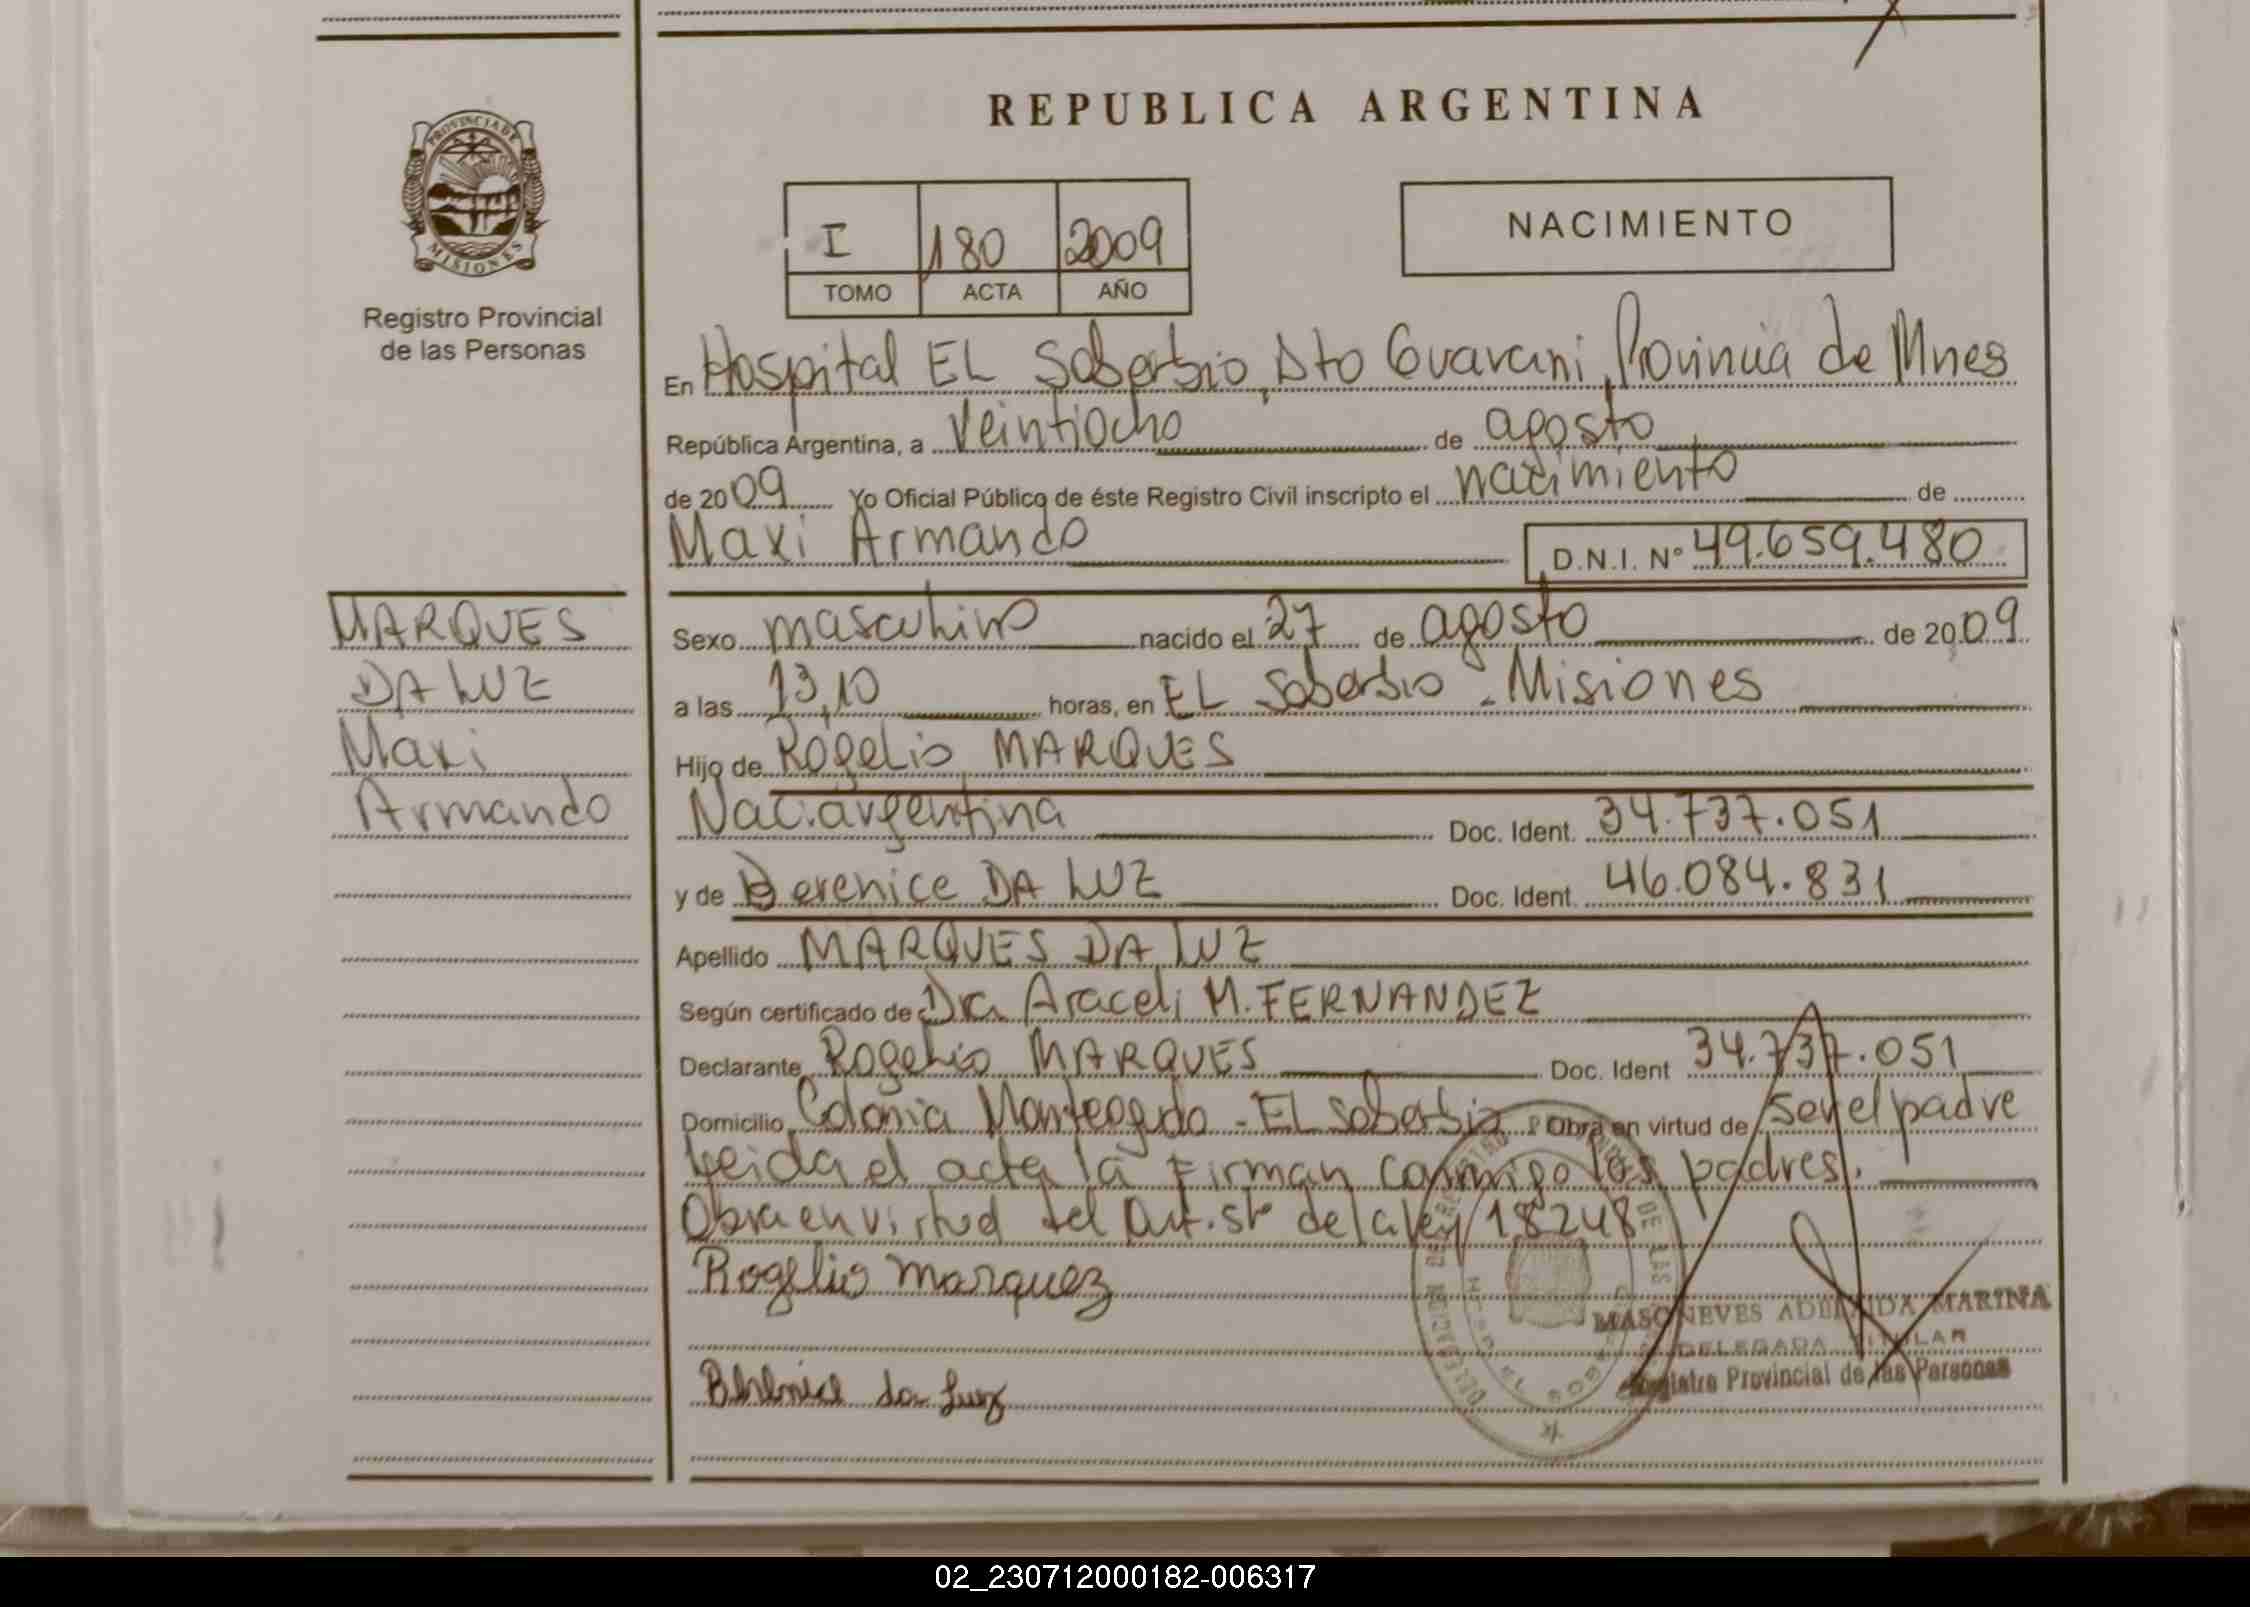 REPUBLICA ARGENTINA
PROVINCIA DE
MISIONES
Registro Provincial
de las Personas
I 180 2009
TOMO ACTA AÑO
NACIMIENTO
En Hospital EL Soberbio, Dto Guarani, Provincia de Mnes
República Argentina, a veintiocho de agosto
de 2009 Yo Oficial Público de éste Registro Civil inscripto el nacimiento de
Maxi Armando D.N.I. Nº 49.659.480
MARQUES
DA LUZ
Maxi
Armando
Sexo masculino nacido el 27 de agosto de 2009
a las 13,10 horas, en EL Soberbio - Misiones
Hijo de Rogelio MARQUES
Nac. argentina Doc. Ident. 34.737.051
y de Berenice DA LUZ Doc. Ident. 46.084.831
Apellido MARQUES DA LUZ
Según certificado de Dra Araceli M. FERNANDEZ
Declarante Rogelio MARQUES Doc. Ident 34.737.051
Domicilio Colonia Monteagudo - EL Soberbio Obra en virtud de ser el padre
Leida el acta la firman conmigo los padres.
Obra en virtud del Art. 5to de la ley 18248
Rogelio marquez
MASCNEVES ADELAIDA MARINA
DELEGADA TITULAR
Registro Provincial de las Personas
Berenice da luz
02_230712000182-006317